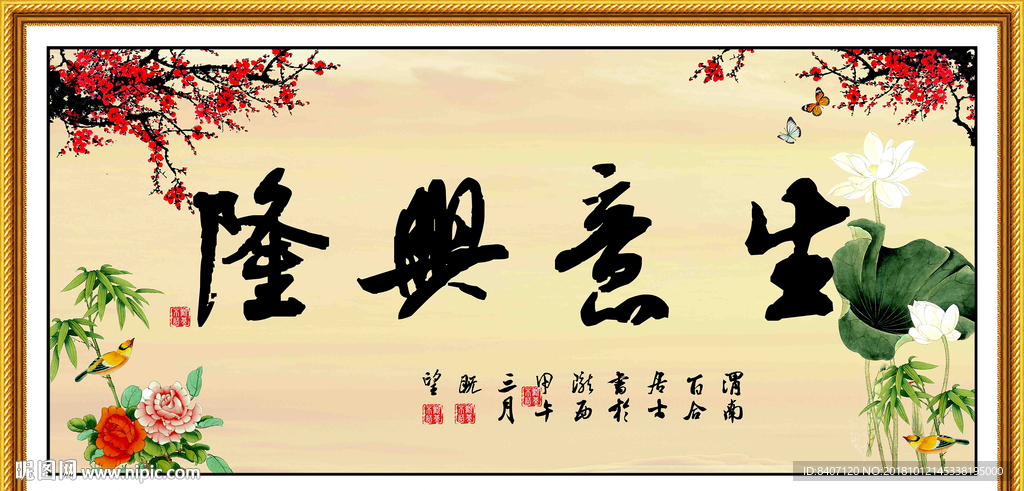 生意興隆
渭南
百合
居士
書於
西
甲午
三月
既
望
昵图网 www.nipic.com
ID:8407120 NO:20181012145338195000